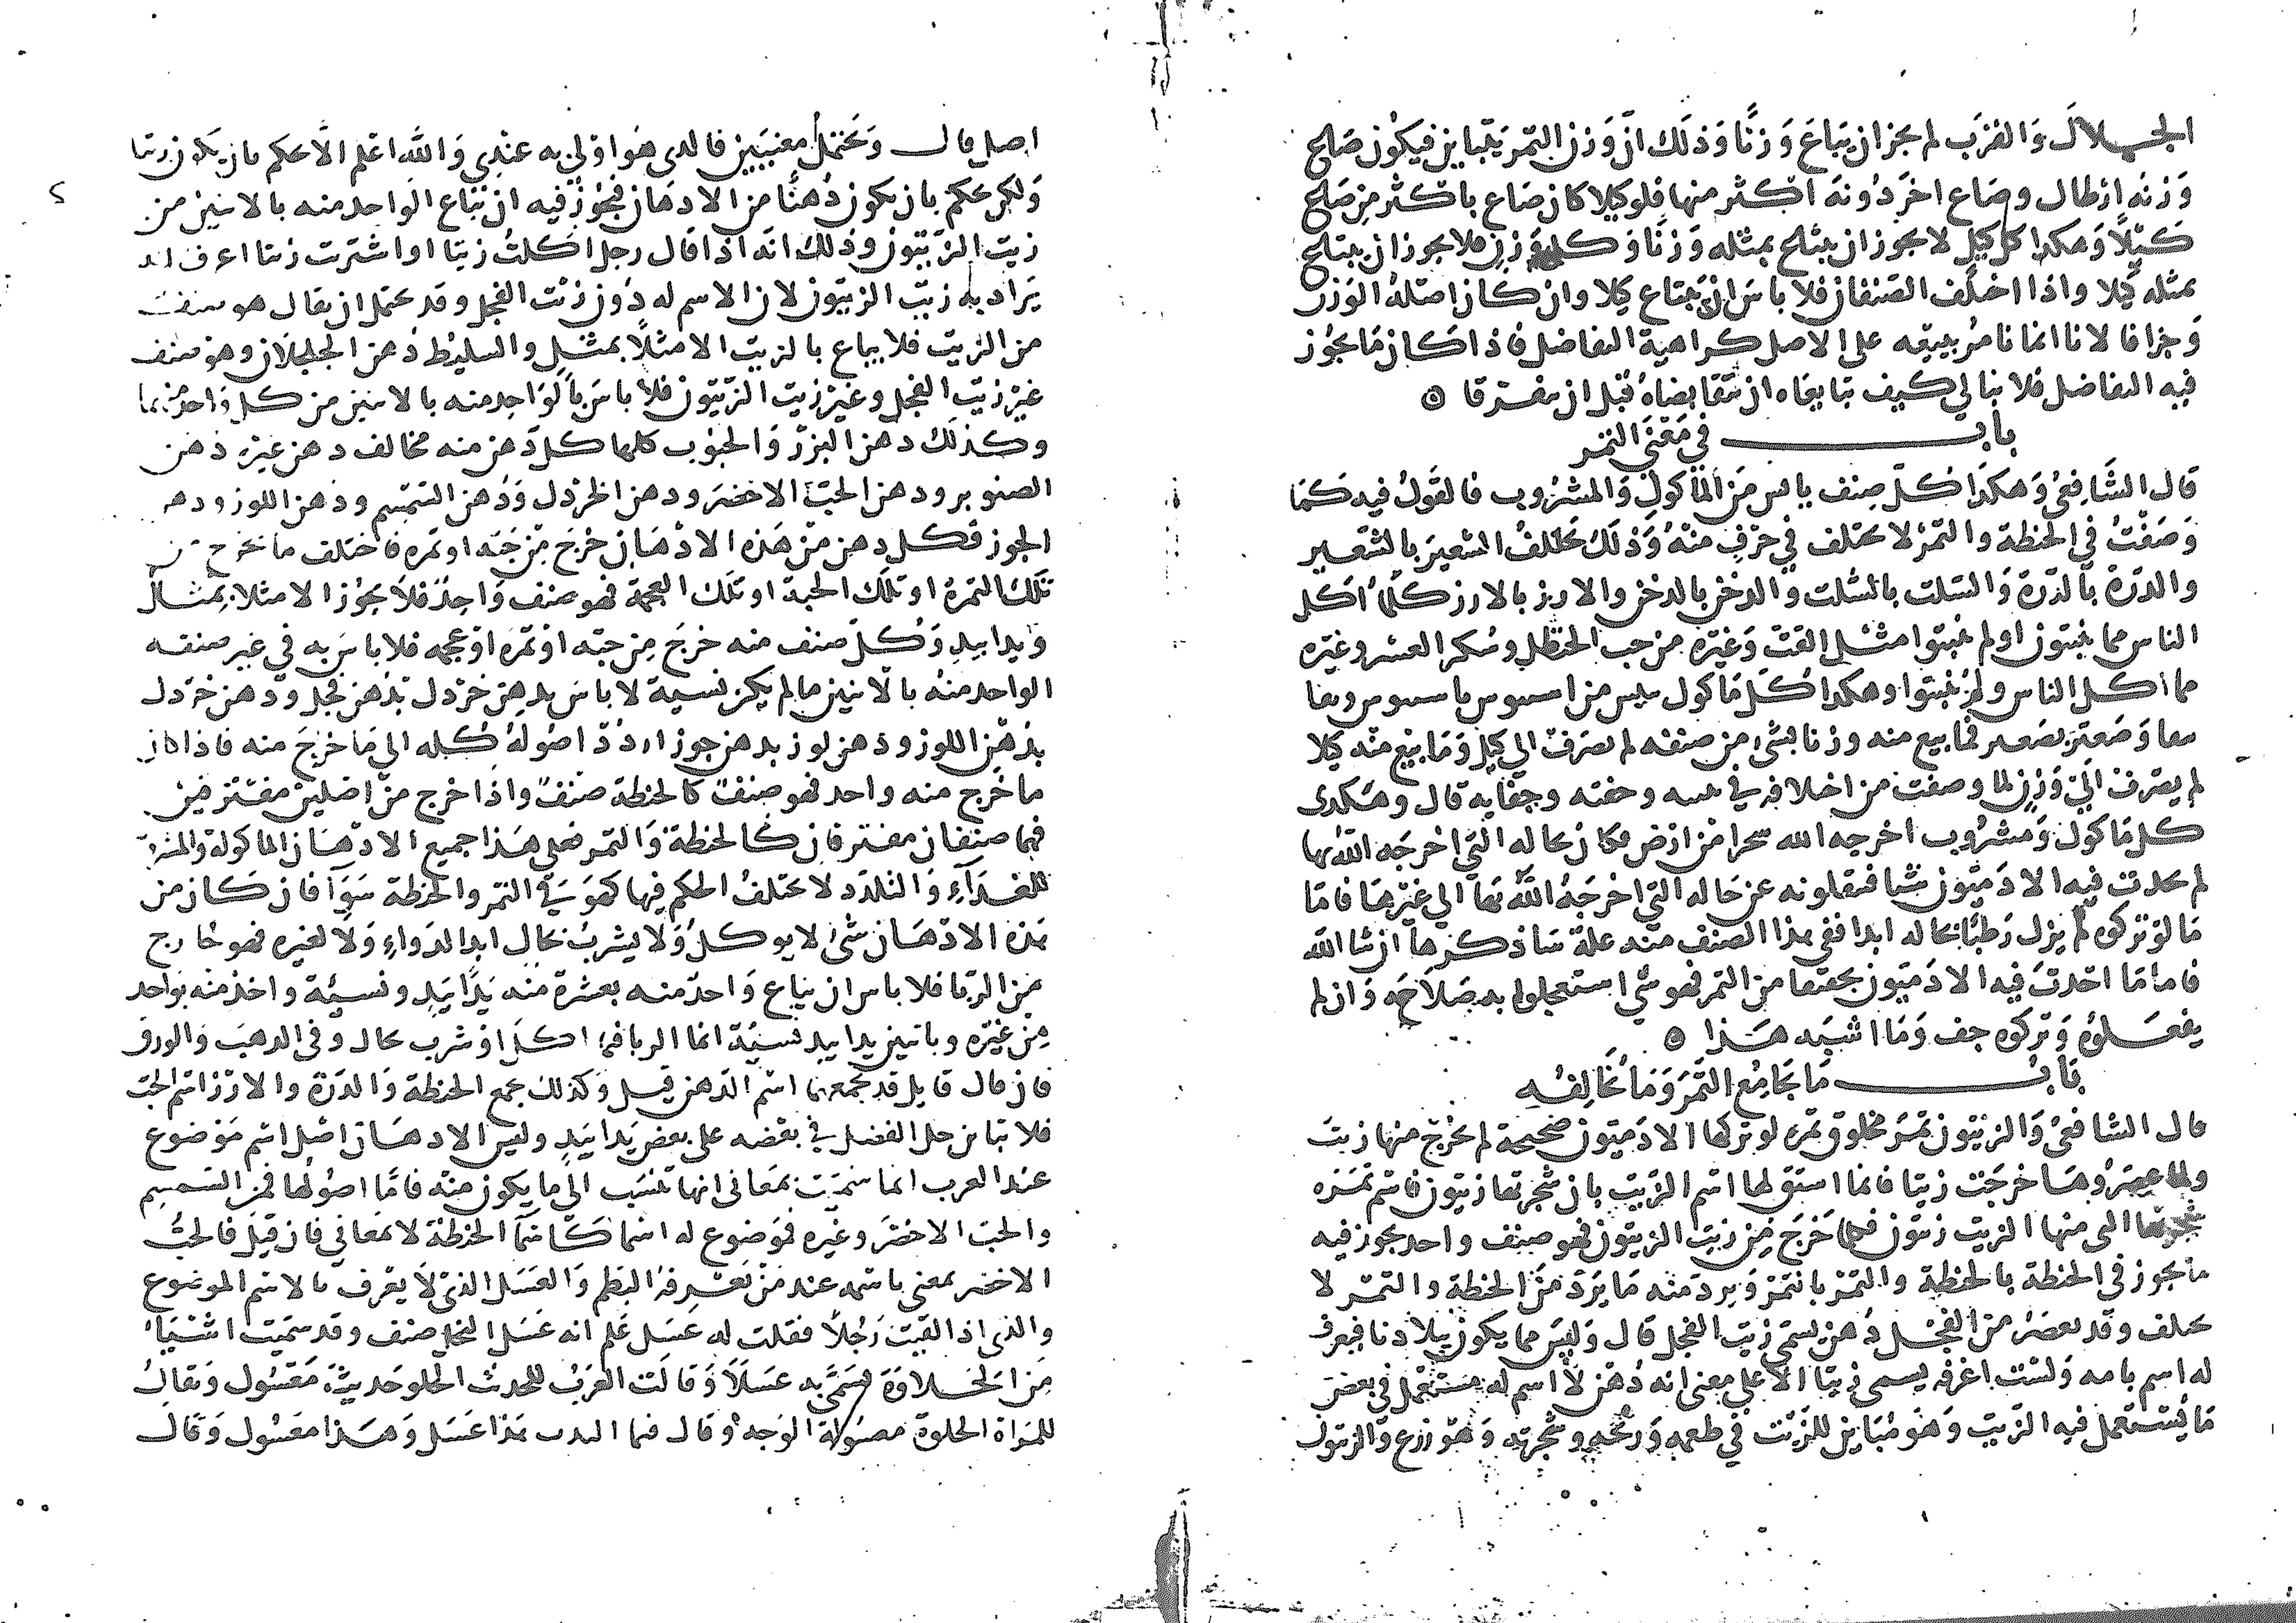 الجلال والقرب لم يجز ان يباع وزنا وذلك ان وزن التمر يتباين فيكون صاع
وزنه ارطال وصاع اخر دونه اكثر منها فلو كيلا كان صاع باكثر من صاع
كيلا وهكذا كل كيل لا يجوز ان يبتاع بمثله وزنا وكل وزن فلا يجوز ان يبتاع
بمثله كيلا واذا اختلف الصنفان فلا باس ان يبتاع كيلا وان كان اصله الوزن
وجزافا لانا انما نامر ببيعه على الاصل كراهية التفاضل فاذا كان ما يجوز
فيه التفاضل فلا نبالي كيف تبايعاه ان تقابضاه قبل ان يتفرقا ه
باب في معنى التمر
قال الشافعي وهكذا كل صنف يابس من الماكول والمشروب فالقول فيه كما
وصفت في الحنطة والتمر لا يختلف في حرف منه وذلك يخالف الشعير بالشعير
والذرة بالذرة والسلت بالسلت والدخن بالدخن والارز بالارز كلما اكل
الناس مما ينبتون او لم ينبتوا مثل الفت وغيره من حب الحنظل وسكر العشر وغيره
مما اكل الناس ولم ينبتوا وهكذا كل ماكول يبس من اسبيوس باسبيوس وثفا
بثفا وصعتر بصعتر فما بيع منه وزنا بشيء من صنفه لم يصرف الي كيل وما بيع منه كيلا
لم يصرف الي وزن لما وصفت من اختلافه في يبسه وخفته وجفايه قال وهكذى
كل ماكول ومشروب اخرجه الله من شجر او ارض فكان بحاله التي اخرجه الله بها
لم يحدث فيه الادميون شيا فينقلونه عن حاله التي اخرجه الله بها الي غيرها فاما
ما لو تركوه لم يزل رطبا بحاله ابدا ففي هذا الصنف منه علة ساذكرها ان شا الله
فاما ما احدث فيه الادميون تجفيفا من الثمر فهو شي استعجلوا به صلاحه وان لم
يفعلوه وتركوه جف وما اشبه هذا ه
باب ما يجامع التمر وما يخالفه
قال الشافعي والزيتون ثمر مخلوق ثمره لو تركها الادميون صحيحة لم يخرج منها زيت
ولما عصروها خرجت زيتا فانما اشتق لها اسم الزيت بان شجرتها زيتون فاسم ثمره
شجرتها التي منها الزيت زيتون فكلما خرج من زيت الزيتون فهو صنف واحد يجوز فيه
ما يجوز في الحنطة بالحنطة والتمر بالتمر ويرد منه ما يرد من الحنطة والتمر لا
يختلف وقد يعصر من الفجل دهن يسمى زيت الفجل قال وليس مما يكون ببلادنا فيعرف
له اسم بامه ولست اعرفه يسمى زيتا الا على معنى انه دهن لا اسم له مستعمل في بعض
ما يستعمل فيه الزيت وهو مباين للزيت في طعمه وريحه وشجرته وهو زرع والزيتون
اصل قال ويحتمل معنيين فالذى هو اولى به عندي والله اعلم الا يحكم بان يكون زيتا
ولكن يحكم بان يكون دهنا من الادهان فيجوز فيه ان يباع الواحد منه بالاثنين من
زيت الزيتون وذلك انه اذا قال رجل اكلت زيتا او اشتريت زيتا اعرف انه
يراد به زيت الزيتون لان الاسم له دون زيت الفجل وقد يحتمل ان يقال هو صنف
من الزيت فلا يباع بالزيت الا مثلا بمثل والسليط دهن الجلجلان وهو صنف
غير زيت الفجل وغير زيت الزيتون فلا باس بالواحد منه بالاثنين من كل واحد منهما
وكذلك دهن البزر والحبوب كلها كل دهن منه مخالف دهن غيره دهن
الصنوبر ودهن الحب الاخضر ودهن الخردل ودهن السمسم ودهن اللوز ودهن
الجوز فكل دهن من هذه الادهان خرج من حبه او ثمره فاختلف ما يخرج من
تلك الثمرة او تلك الحبة او تلك العجمة فهو صنف واحد فلا يجوز الا مثلا بمثل
ويدا بيد وكل صنف منه خرج من حبه او ثمره او عجمه فلا باس به في غير صنفه
الواحد منه بالاثنين ما لم يكن نسية لا باس بدهن خردل بدهن فجل ودهن خردل
بدهن اللوز ودهن لوز بدهن جوز اردد اصوله كله الي ما خرج منه فاذا كان
ما خرج منه واحد فهو صنف كالحنطة صنف واذا خرج من اصلين مفترقين
فهما صنفان مفترقان كالحنطة والتمر فعلى هذا جميع الادهان الماكولة والمشروبة
للغذاء والتلذذ لا يختلف الحكم فيها كهو في التمر والحنطة سوآ فان كان من
هذه الادهان شيء لا يوكل ولا يشرب بحال ابدا لدواء ولا لغيره فهو خارج
من الربا فلا باس ان يباع واحد منه بعشرة منه يدا بيد ونسيئة واخذ منه بواحد
من غيره وباثنين يدا بيد نسيئة انما الربا فيما اكل او شرب بحال وفى الذهب والورق
فان قال قايل قد يجمعهما اسم الدهن قيل وكذلك يجمع الحنطة والذرة والارز اسم الحب
فلا تباين حل الفضل في بعضه على بعض يدا بيد وليس الادهان اصل اسم موضوع
عند العرب انما سميت بمعاني انها تنسب الي ما يكون منه فاما اصولها فمن السمسم
والحب الاخضر وغيره فموضوع له اسما كاسما الحنطة لا بمعاني فان قيل فالحب
الاخضر بمعنى باسمه عند من يعرفه البطم والعسل الذي لا يعرف بالاسم الموضوع
والذي اذا لقيت رجلا فقلت له عسل علم انه عسل النحل صنف وقد سميت اشياء
من الحلاوة يسمى به عسلا وقالت العرب للحديث الحلو حديث معسول ويقال
للمراة الحلوة معسولة الوجه وقال فيما هذا عسل وهذا معسول وقال